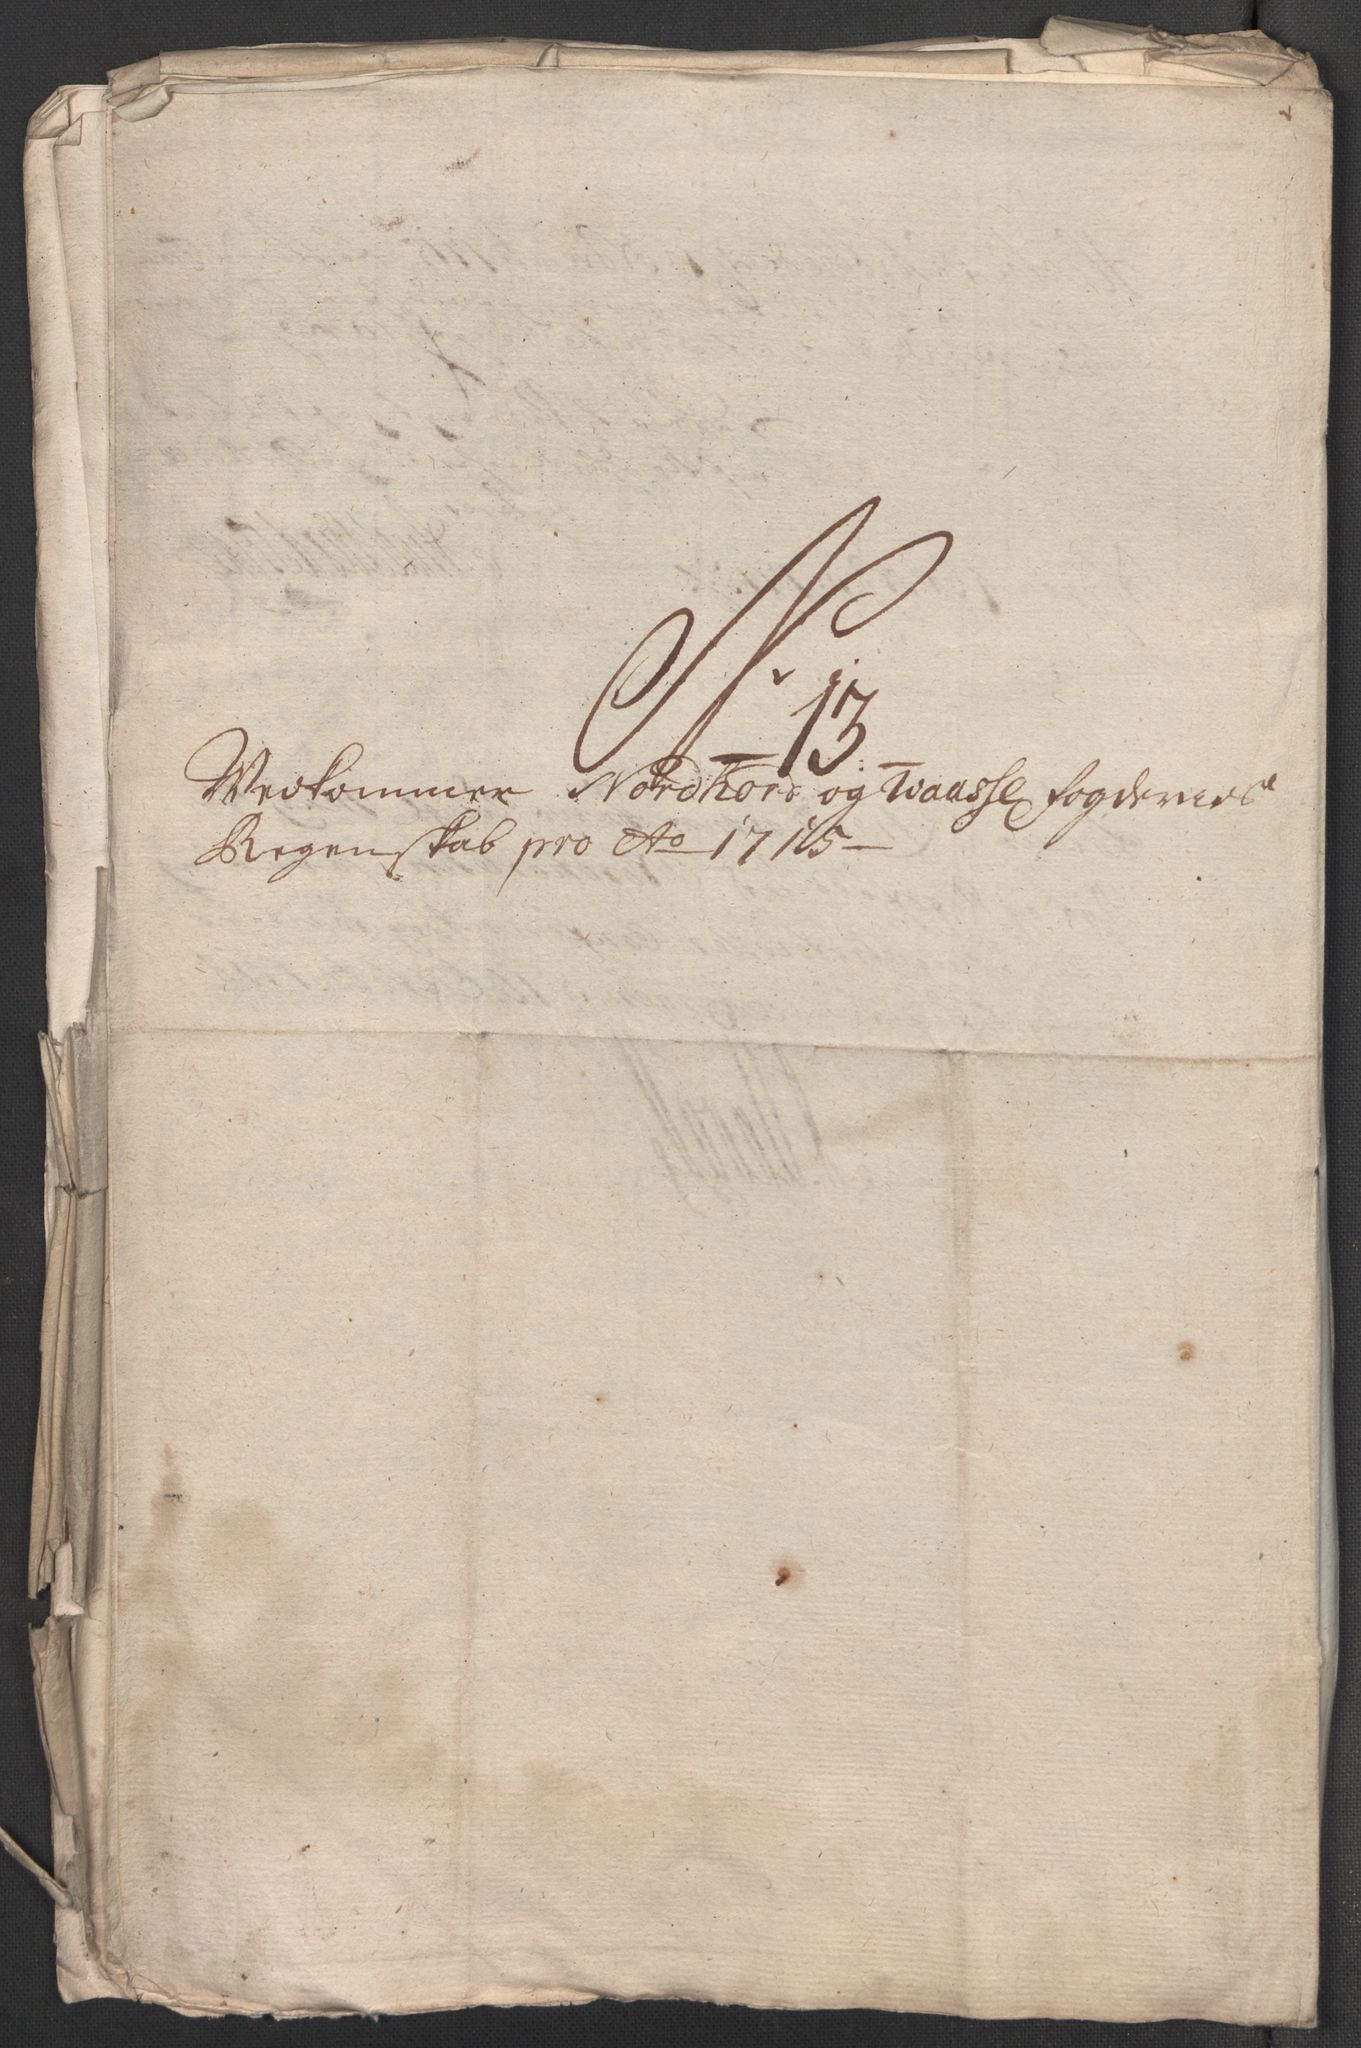 N 13
Vedkommer Nordhors og Waasse fogderies
Regenskab pro Ao 1715